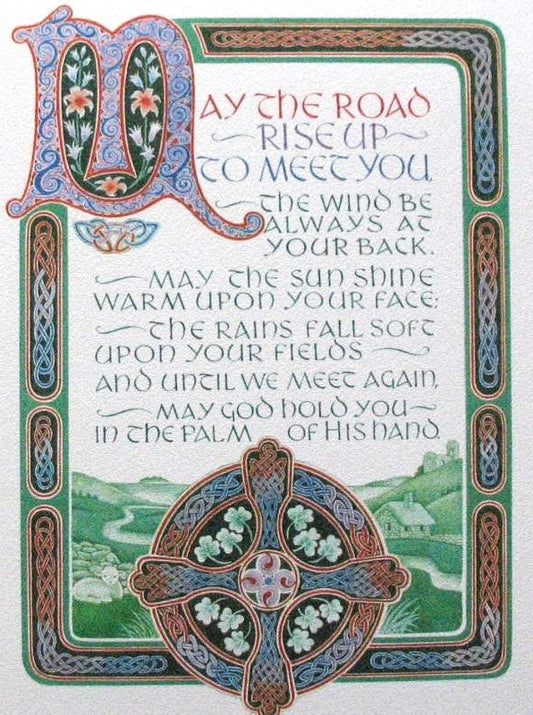 MAY THE ROAD
RISE UP
TO MEET YOU.
THE WIND BE
ALWAYS AT
YOUR BACK.
MAY THE SUN SHINE
WARM UPON YOUR FACE:
THE RAINS FALL SOFT
UPON YOUR FIELDS
AND UNTIL WE MEET AGAIN,
MAY GOD HOLD YOU
IN THE PALM OF HIS HAND.